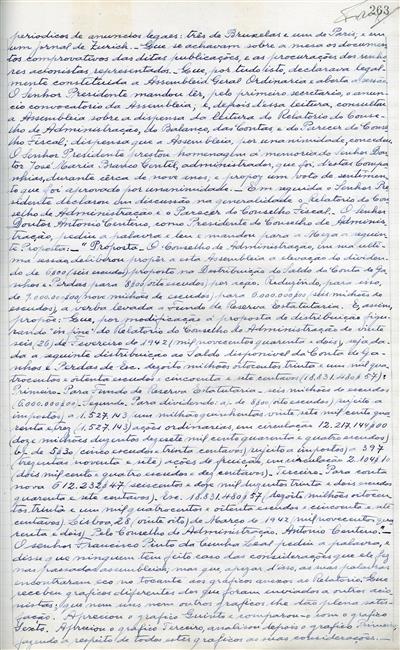 263
periodicos de anuncios legaes: três de Bruxelas e um de Paris, e em
um jornal de Zurich. — Que se achavam sobre a mesa os documen-
tos comprovativos das ditas publicações, e as procurações dos senho-
res acionistas representados. — Que, por tudo isto, declarava legal-
mente constituida a Assembleia Geral Ordinaria e aberta a sessão.
O Senhor Presidente mandou lêr, pelo primeiro secretario, o anun-
cio convocatorio da Assembleia; e, depois dessa leitura, consultou
a Assembleia sobre a dispensa da leitura do Relatorio do Conse-
lho de Administração, do Balanço, das Contas e do Parecer do Conse-
lho Fiscal; dispensa que a Assembleia, por unanimidade, concedeu.
O Senhor Presidente prestou homenagem á memoria do Senhor Dou-
tor José Maria, administrador, que foi, desta Compa-
nhia, durante cêrca de nove anos; e propoz um voto de sentimen-
to que foi aprovado por unanimidade. — Em seguida o Senhor Pre-
sidente declarou em discussão na generalidade o Relatorio do Con-
selho de Administração e o Parecer do Conselho Fiscal. — O Senhor
Doutor Antonio Centeno, como Presidente do Conselho de Adminis-
tração, pediu a palavra e leu e mandou para a Mesa a seguin-
te Proposta. — "Proposta. O Conselho de Administração, em sua ulti-
ma sessão, deliberou propôr a esta Assembleia a elevação do dividen-
do de 6$00 (seis escudos) proposto na Distribuição do Saldo da Conta de Ga-
nhos e Perdas para 8$00 (oito escudos) por acção. Reduzindo, para isso,
de 9.000.000$00 (nove milhões de escudos) para 6.000.000$00 (seis milhões de
escudos) a verba levada a Fundo de Reserva Estatutaria. E, assim
propõe: — Que, por modificação á proposta de distribuição figu-
rando "in fine" do Relatorio do Conselho de Administração de vinte
seis (26) de Fevereiro de 1942 (mil novecentos quarenta e dois), seja da-
da a seguinte distribuição ao Saldo disponivel da Conta de Ga-
nhos e Perdas de Esc. dezoito milhões oitocentos trinta e um mil qua-
trocentos e oitenta escudos e cincoenta e sete centavos (18.831.480$57):
Primeiro. Para Fundo de Reserva Estatutaria — seis milhões de escudos
6.000.000$00. Segundo. Para dividendo: a) — de 8$00 (oito escudos) sujeito a
impostos) a 1.527.143 um milhão quinhentos vinte sete mil cento qua-
renta e trez (1.527.143) acções ordinarias, em circulação 12.217.144$00
(doze milhões duzentos dezesete mil cento quarenta e quatro escudos)
b) — de 5$30 (cinco escudos e trinta centavos) sujeito a impostos) a 397
(trezentas noventa e sete) acções de fruição, em circulação 2.104$10
(dois mil cento e quatro escudos e dez centavos). — Terceiro. Para conta
nova 612.232$47 seiscentos e doze mil duzentos trinta e dois escudos
quarenta e sete centavos). Esc. 18.831.480$57 (dezoito milhões oitocen-
tos trinta e um mil quatrocentos e oitenta escudos e cincoenta e sete
centavos). Lisboa, 28 (vinte oito) de Março de 1942 (mil novecentos qua-
renta e dois). Pelo Conselho de Administração. Antonio Centeno. —
O senhor Francisco Pinto da Cunha Leal pediu a palavra, e
disse que ninguem tem feito caso das considerações que ele fez
nas passadas assembleias, mas que, apezar disso, as suas palavras
encontraram éco no tocante aos graficos anexos ao Relatorio. — Que
recebeu graficos diferentes dos que foram enviados a outros acio-
nistas, que nem uns nem outros graficos lhe dão plena satis-
fação. Apreciou o grafico Quinto e comparou-o com o grafico
Sexto. Apreciou o grafico Terceiro, analisou depois o grafico Primeiro,
fazendo a respeito de todos estes graficos as suas considerações. —